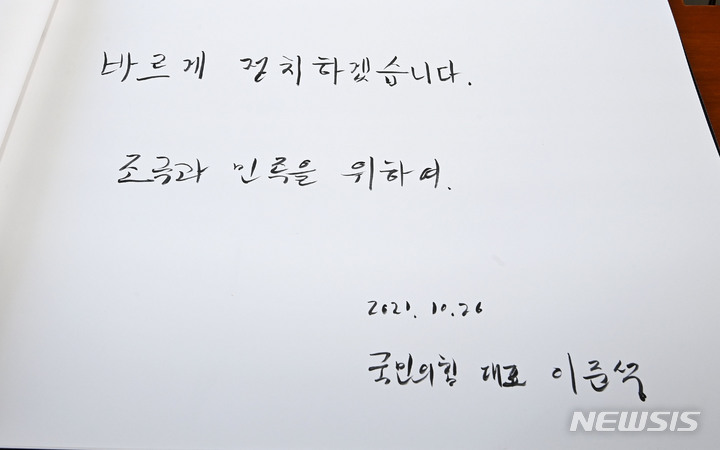 바르게 정치하겠습니다.
조국과 민족을 위하여.
2021. 10. 26
국민의힘 대표 이준석
NEWSIS